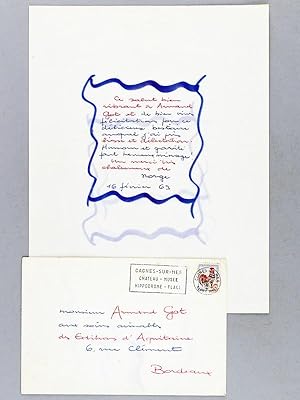 Ce salut bien
vibrant à Armand
Got et de bien vives
félicitations pour ce
délicieux bestiaire
auquel j'ai pris
liesse et délectation
Humour et gravité
font heureux mariage
Un merci très
chaleureux de
Norge
16 février 63
CAGNES-SUR-MER
CHATEAU - MUSÉE
HIPPODROME - PLAGE
monsieur Armand Got
aux soins aimables
des Editions d'Aquitaine
6, rue Clément
Bordeaux